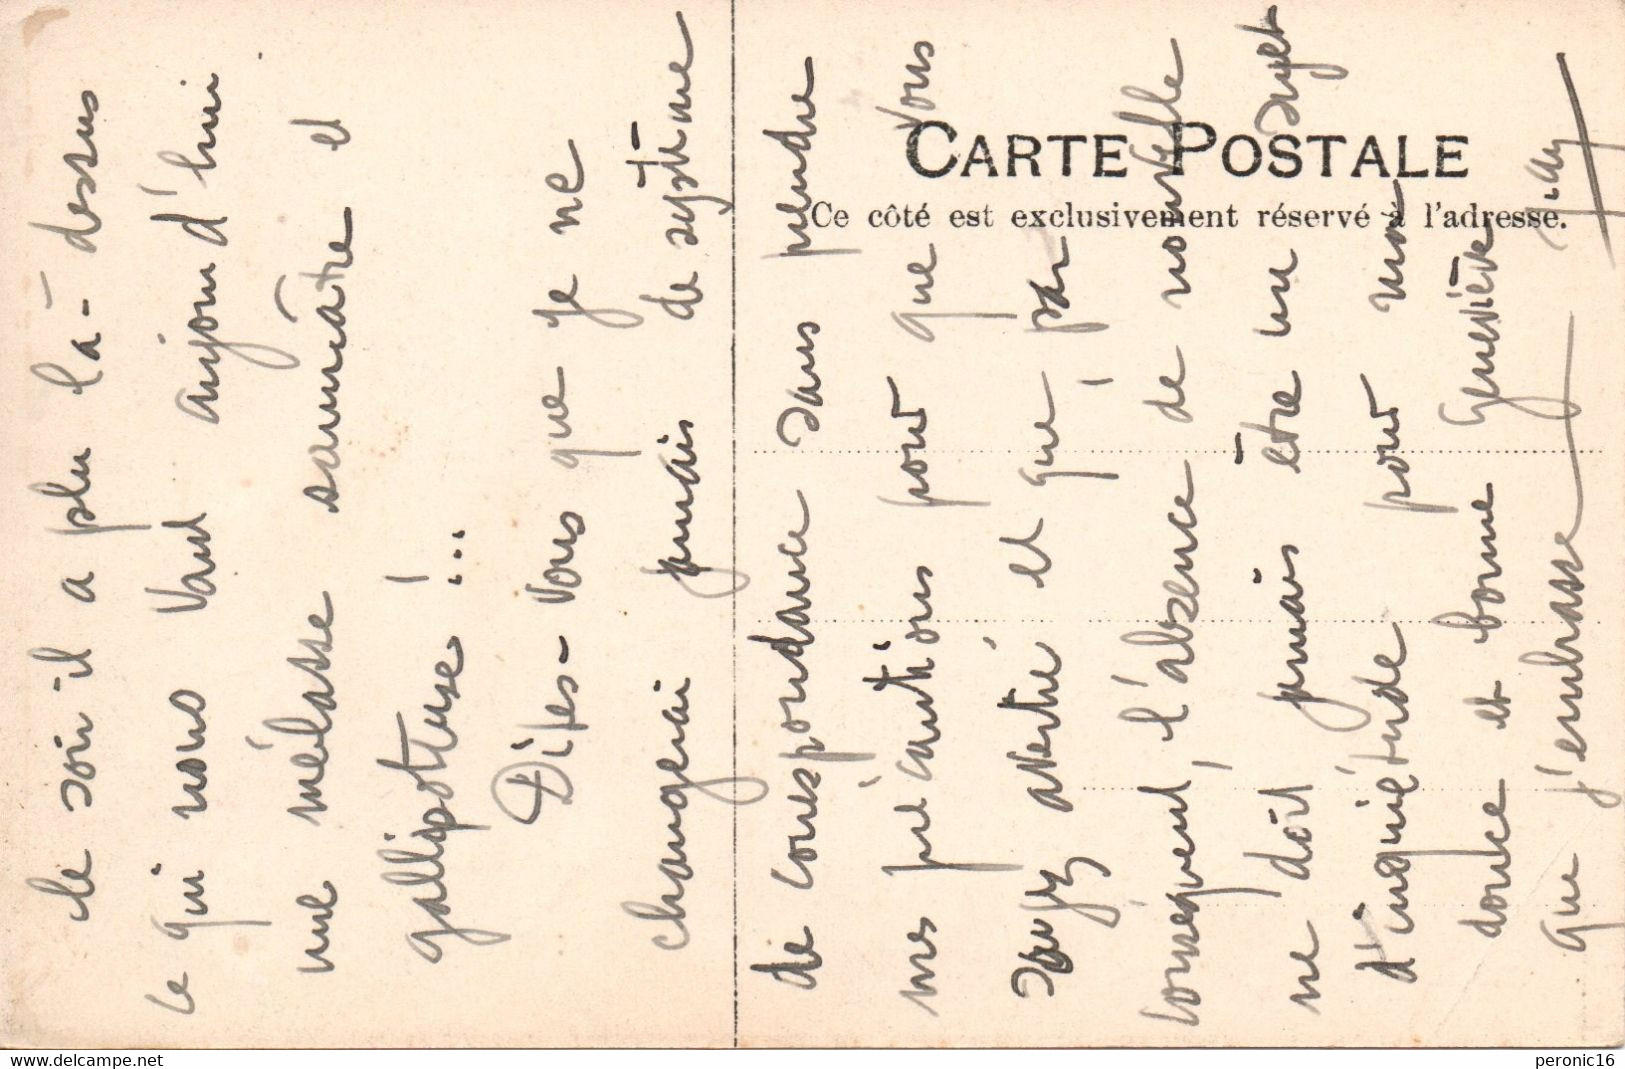 CARTE POSTALE
Ce côté est exclusivement réservé à l'adresse.
le soir il a plu là-dessus
ce qui nous vaut aujourd'hui
une mélasse saumâtre et
gallipoteuse !...
Dites-vous que je ne
changerai jamais de système
de correspondance sans prendre
mes précautions pour que vous
soyez averti et que, par
conséquent, l'absence de nouvelle
ne doit jamais être un sujet
d'inquiétude pour moi
douce et bonne Geneviève
que j'embrasse
peronic16